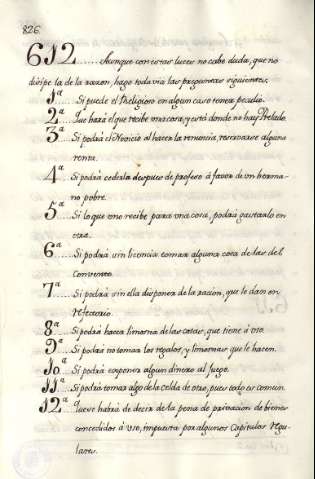 826.
612 ..... Aunque con estas luces no cabe duda, que no
disipe la de la razon, hago todavia las preguntas siguientes.
1ª ..... Si puede el Religioso en algun caso tener peculio.
2ª ..... Que hará el que recibe una cosa, y está donde no hay Prelado.
3ª ..... Si podrá el Novicio al hacer la renuncia, reservarse alguna
renta.
4ª ..... Si podrá cederla despues de profeso á favor de un herma-
no pobre.
5ª ..... Si lo que uno recibe para una cosa, podrá gastarlo en
otra.
6ª ..... Si podrá sin licencia tomar alguna cosa de las del
Convento.
7ª ..... Si podrá sin ella disponer de la racion, que le dan en
Refectorio.
8ª ..... Si podrá hacer limosna de las cosas, que tiene á uso.
9ª ..... Si podrá no tomar los regalos, y limosnas que le hacen.
10ª ..... Si podrá exponer algun dinero al Juego.
11ª ..... Si podrá tomar algo de la celda de otro, pues todo es comun.
12ª ..... Que se habrá de decir de la pena de privacion de bienes
concedidos á uso, impuesta por algunos Capitulos regu-
lares.